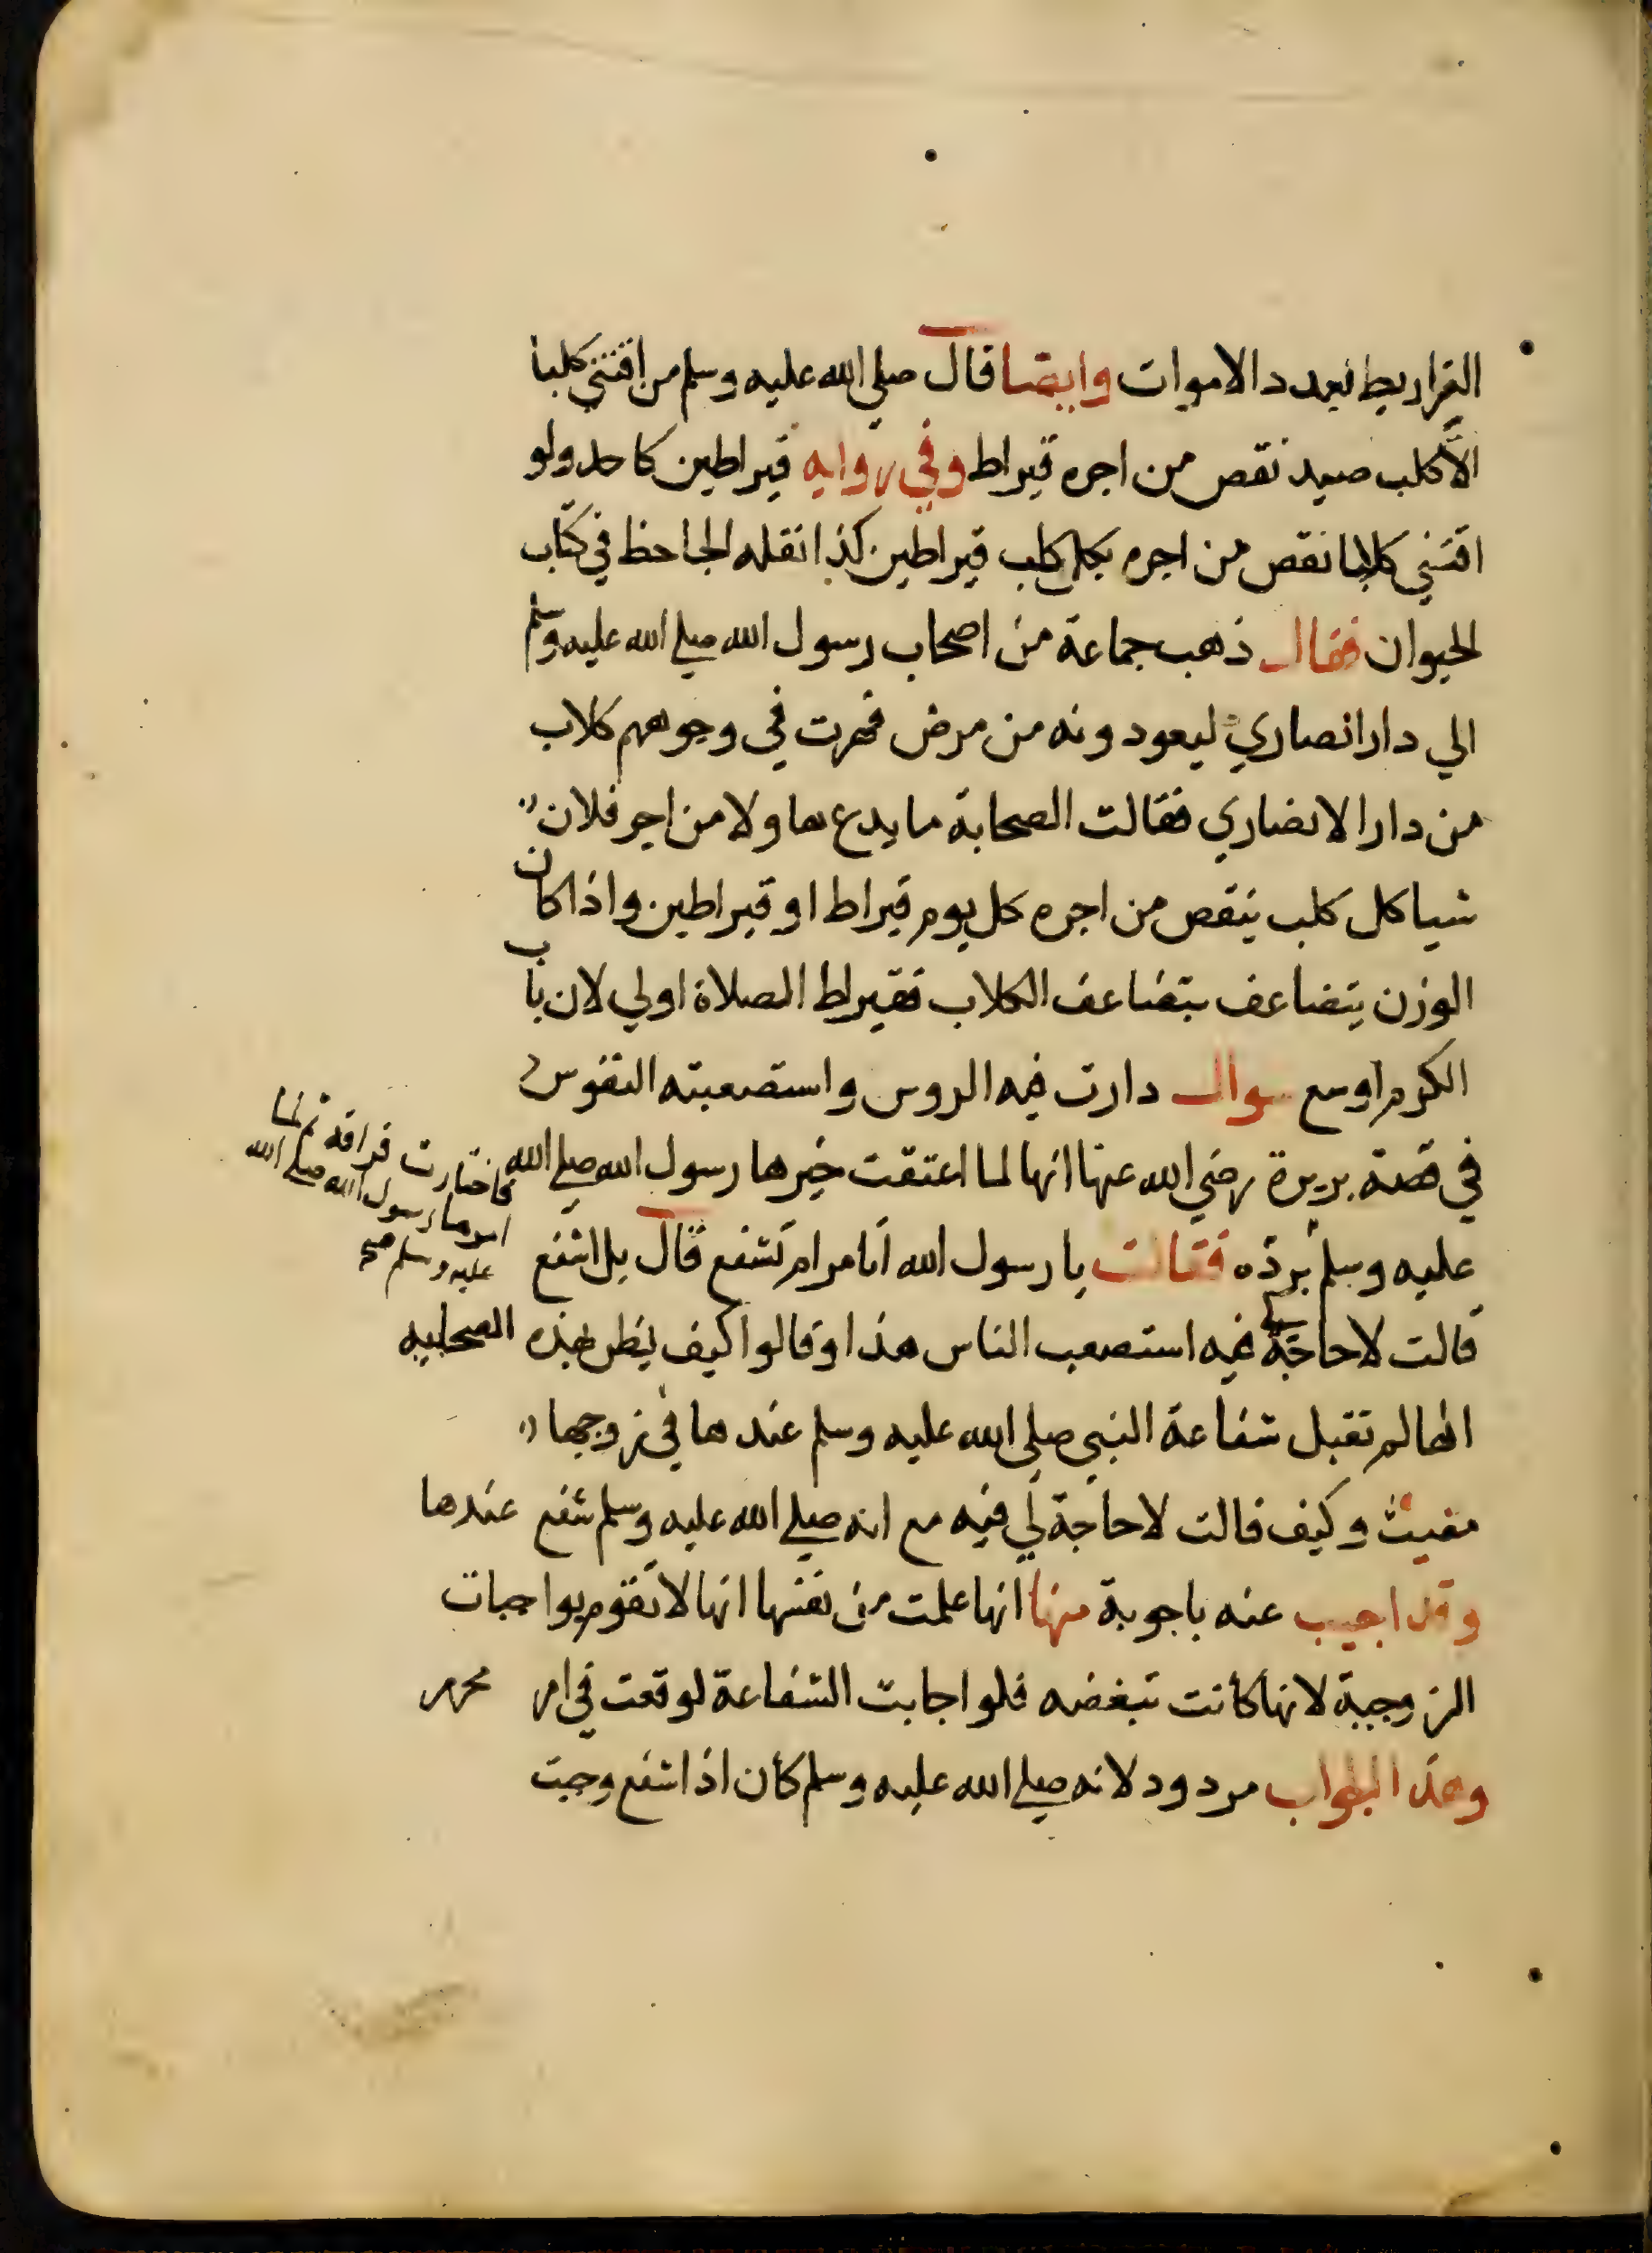 القراريط بعدد الاموات وايضا قال صلى الله عليه وسلم من اقتني كلبا
الا كلب صيد نقص من اجره قيراط وفي روايه قيراطين كاحد ولو
اقتني كلابا نقص من اجره بكل كلب قيراطين كذا نقله الجاحظ في كتاب
الحيوان فقال ذهب جماعة من اصحاب رسول الله صلي الله عليه وسلم
الي دار انصاري ليعودونه من مرض فهرت في وجوههم كلاب
من دار الانصاري فقالت الصحابة ما يدع هاولا من اجر فلان
شيا كل كلب ينقص من اجره كل يوم قيراط او قيراطين واذا كان
الوزن يتضاعف بتضاعف الكلاب فقيراط الصلاة اولي لان باب
الكرم اوسع سوال دارت فيه الروس واستصعبته النفوس
في قصة بريرة رضي الله عنها انها لما اعتقت خيرها رسول الله صلي الله
عليه وسلم بردّه فقالت يا رسول الله أتامر ام تشفع قال بل اشفع
قالت لا حاجة لي فيه استصعب الناس هذا وقالوا كيف يظن بهذه الصحابيه
انها لم تقبل شفاعة النبي صلى الله عليه وسلم عندها في زوجها
مغيث وكيف قالت لا حاجة لي فيه مع انه صلي الله عليه وسلم شفع عندها
وقد اجيب عنه باجوبة منها انها علمت من نفسها انها لا تقوم بواجبات
الزوجية لانها كانت تبغضه فلو اجابت الشفاعة لوقعت في امر محرم
وهذا الجواب مردود لانه صلي الله عليه وسلم كان اذا شفع وجبت
فاختارت فراقه ثم لما
امرها رسول الله صلي الله
عليه وسلم صح